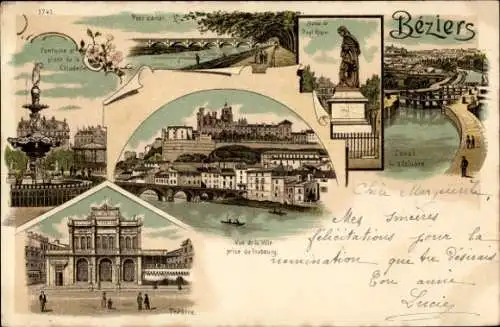 1741.
Pont canal.
Béziers
Fontaine et
place de la
Citadelle
Statue de
Paul Riquet
Canal
Vue de la Ville
prise du faubourg.
Théâtre.
Chère Marguerite,
Mes sincères
félicitations pour la
nomination que tu désirais
Ton amie
Lucie